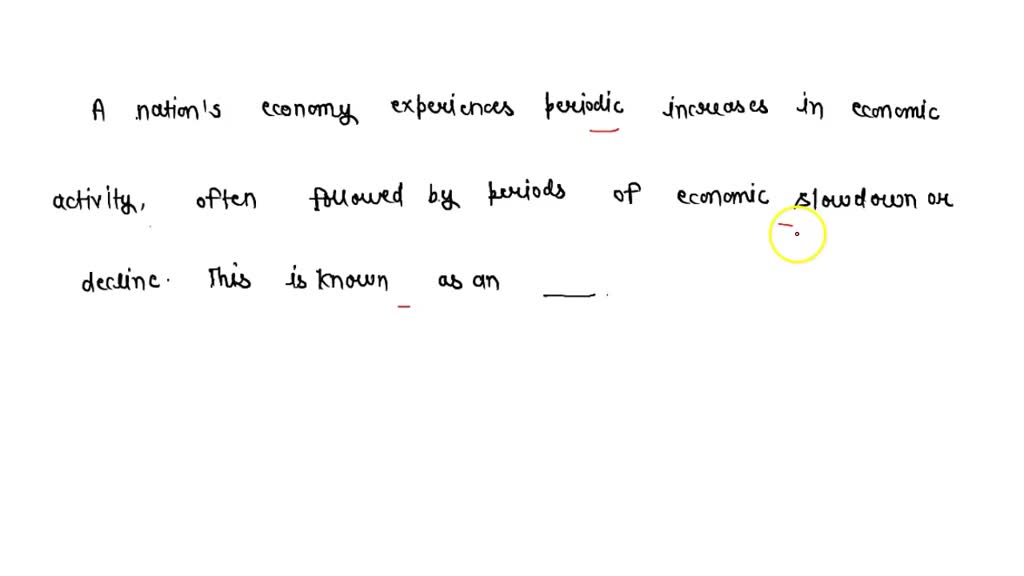 A nation's economy experiences periodic increases in economic
activity, often followed by periods of economic slowdown or
decline. This is known as an ____.